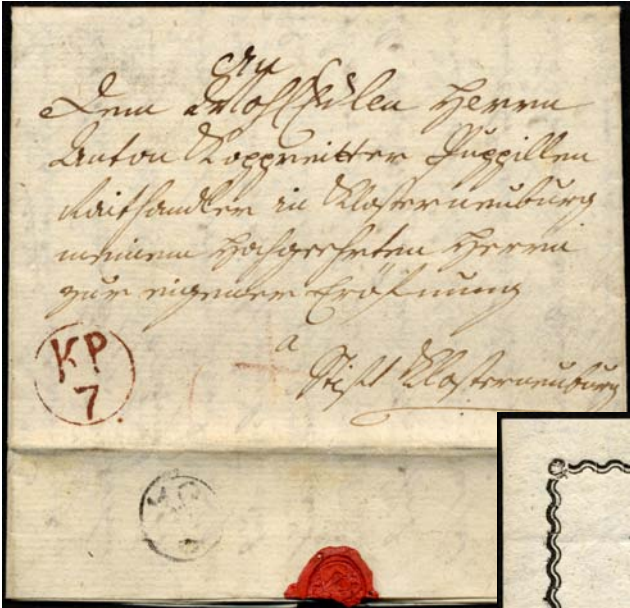 An
Dem WohlEdlen Herrn
Anton Koppreitter Puppillen
Raithandler in Klosterneuburg
meinem hochgeehrten Herrn
zur eigener Eröfnung
a
Stift Klosterneuburg
KP
7